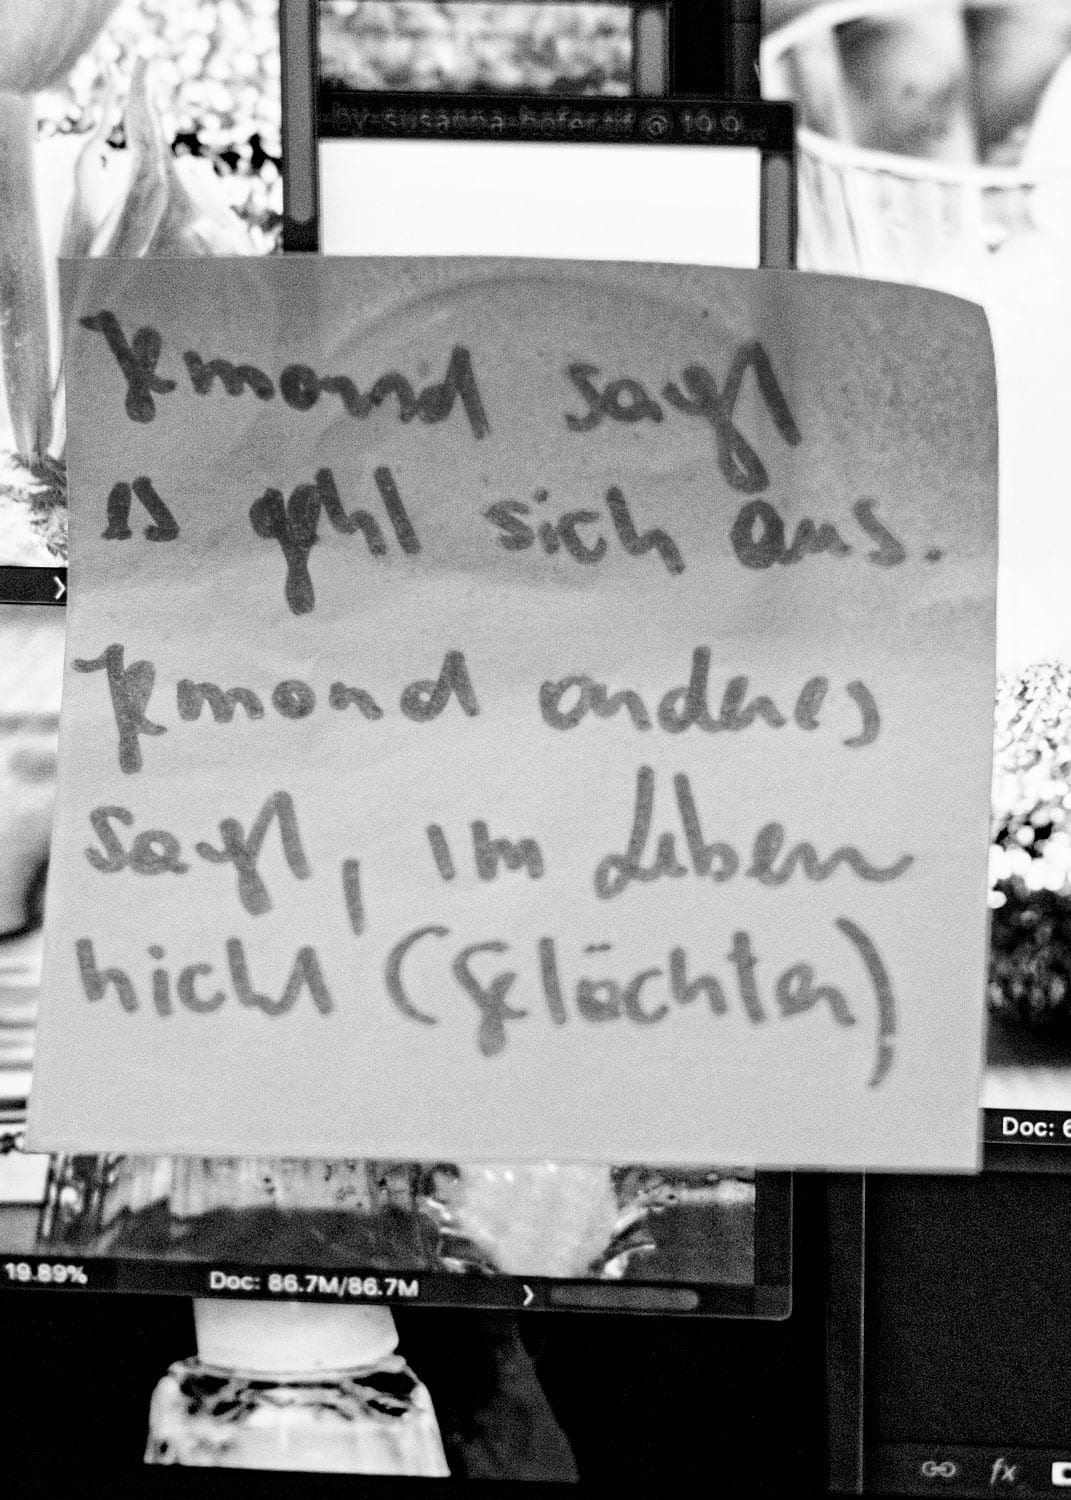 by-susanna-hofer.tif @ 100
Jemand sagt
es geht sich aus.
Jemand anderes
sagt, im Leben
nicht (Gelächter)
Doc: 6
19.89%
Doc: 86.7M/86.7M
fx